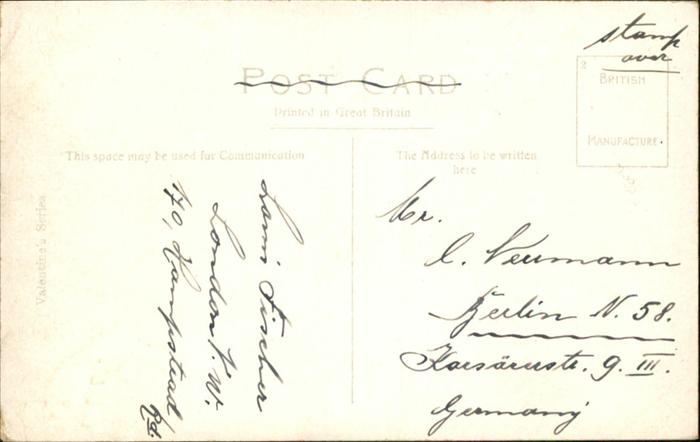 stamp
over
POST CARD
Printed in Great Britain
2
BRITISH
MANUFACTURE.
This space may be used for Communication
The Address to be written
here
Valentine's Series
Louis Fischer
London N. W.
170, Hampstead
Rd.
Mr.
C. Neumann
Berlin N. 58.
9. III.
Germany